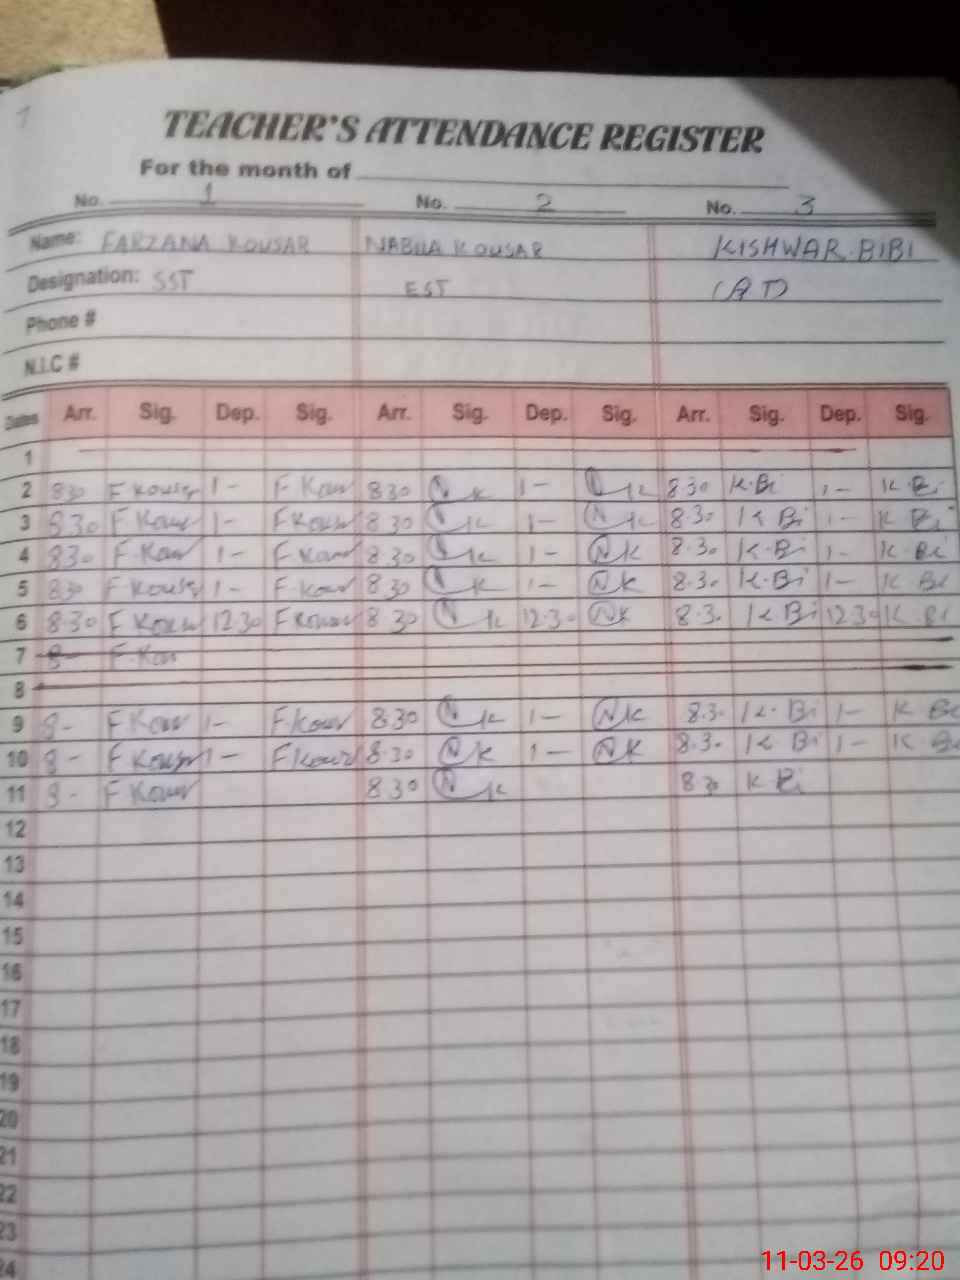 TEACHER'S ATTENDANCE REGISTER
For the month of
No. 1 No. 2 No. 3
Name: FARZANA KOUSAR NABILA KOUSAR KISHWAR.BIBI
Designation: SST EST (AT)
Phone #
N.I.C #
Dates Arr. Sig. Dep. Sig. Arr. Sig. Dep. Sig. Arr. Sig. Dep. Sig.
1
2 830 F Kousar 1- F Kousar 830 NK 1- NK 8 30 K.Bi 1- K Bi
3 8.30 F Kousar 1- F Kousar 8 30 NK 1- NK 8.30 K Bi 1- K Bi
4 830 F.Kousar 1- F Kousar 8.30 NK 1- NK 8.30 K.Bi 1- K.Bi
5 830 F Kousar 1- F.Kousar 830 NK 1- NK 8.30 K.Bi 1- K Bi
6 8.30 F Kousar 12.30 F Kousar 8 30 NK 12.30 NK 8.30 K Bi 12.30 K.Bi
7 8- F.Kousar
8
9 8- F Kousar 1- F Kousar 8.30 NK 1- NK 8.30 K.Bi 1- K Bi
10 8- F Kousar 1- F Kousar 8.30 NK 1- NK 8.30 K Bi 1- K Bi
11 8- F Kousar 8 30 NK 8 30 K Bi
12
13
14
15
16
17
18
19
20
21
22
23
24
11-03-26 09:20